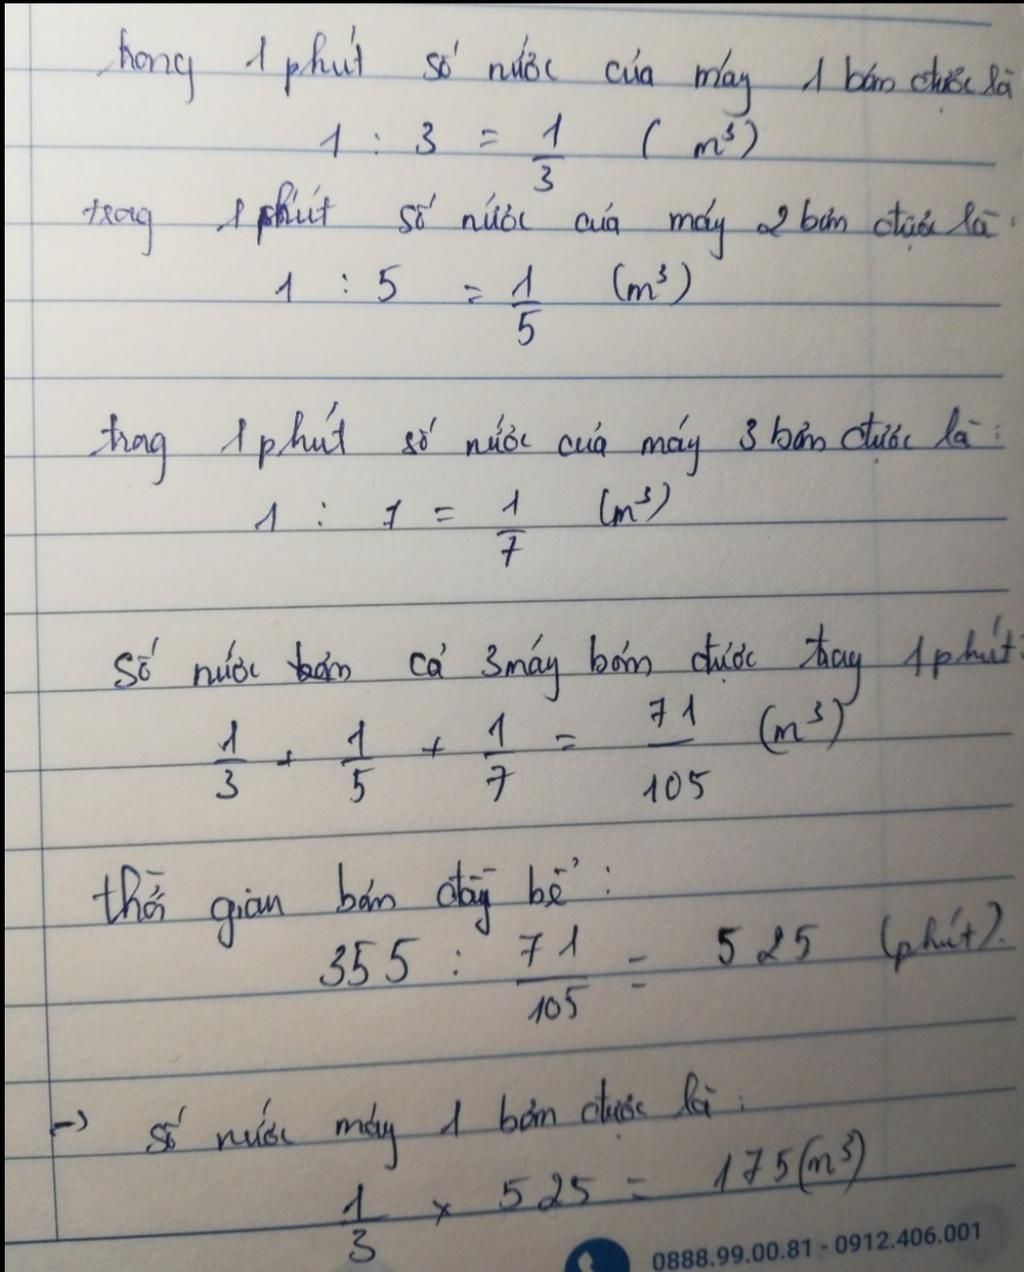 trong 1 phút số nước của máy 1 bơm được là
1 : 3 = 1/3 ( m³)
trong 1 phút số nước của máy 2 bơm được là :
1 : 5 = 1/5 (m³)
trong 1 phút số nước của máy 3 bơm được là :
1 : 7 = 1/7 (m³)
Số nước bơm cả 3 máy bơm được trong 1 phút :
1/3 + 1/5 + 1/7 = 71/105 (m³)
thời gian bơm đầy bể :
355 : 71/105 = 525 (phút).
→ số nước máy 1 bơm được là :
1/3 × 525 = 175 (m³)
0888.99.00.81 - 0912.406.001